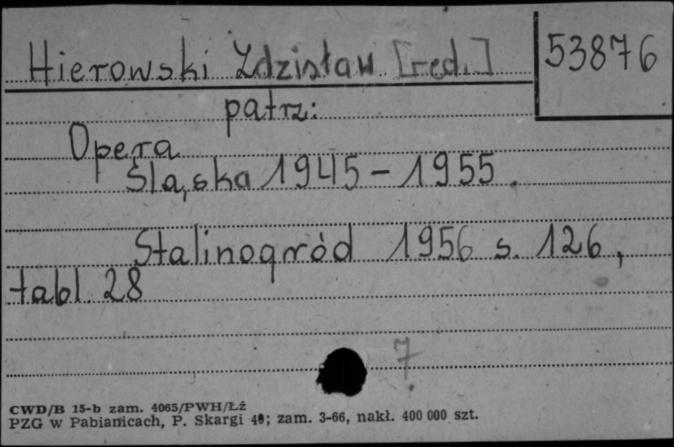 Hierowski Zdzisław [red.] 53876
patrz:
Opera
Śląska 1945-1955.
Stalinogród 1956 s. 126,
tabl. 28
7
CWD/B 15-b zam. 4065/PWH/Łź
PZG w Pabianicach, P. Skargi 40; zam. 3-66, nakł. 400 000 szt.